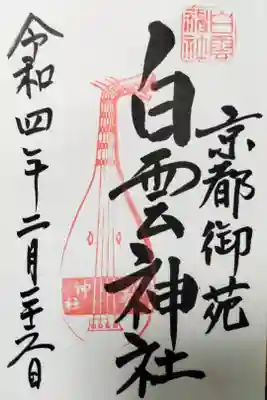 京都御苑
白雲神社
白雲神社
神社
令和四年二月二十六日